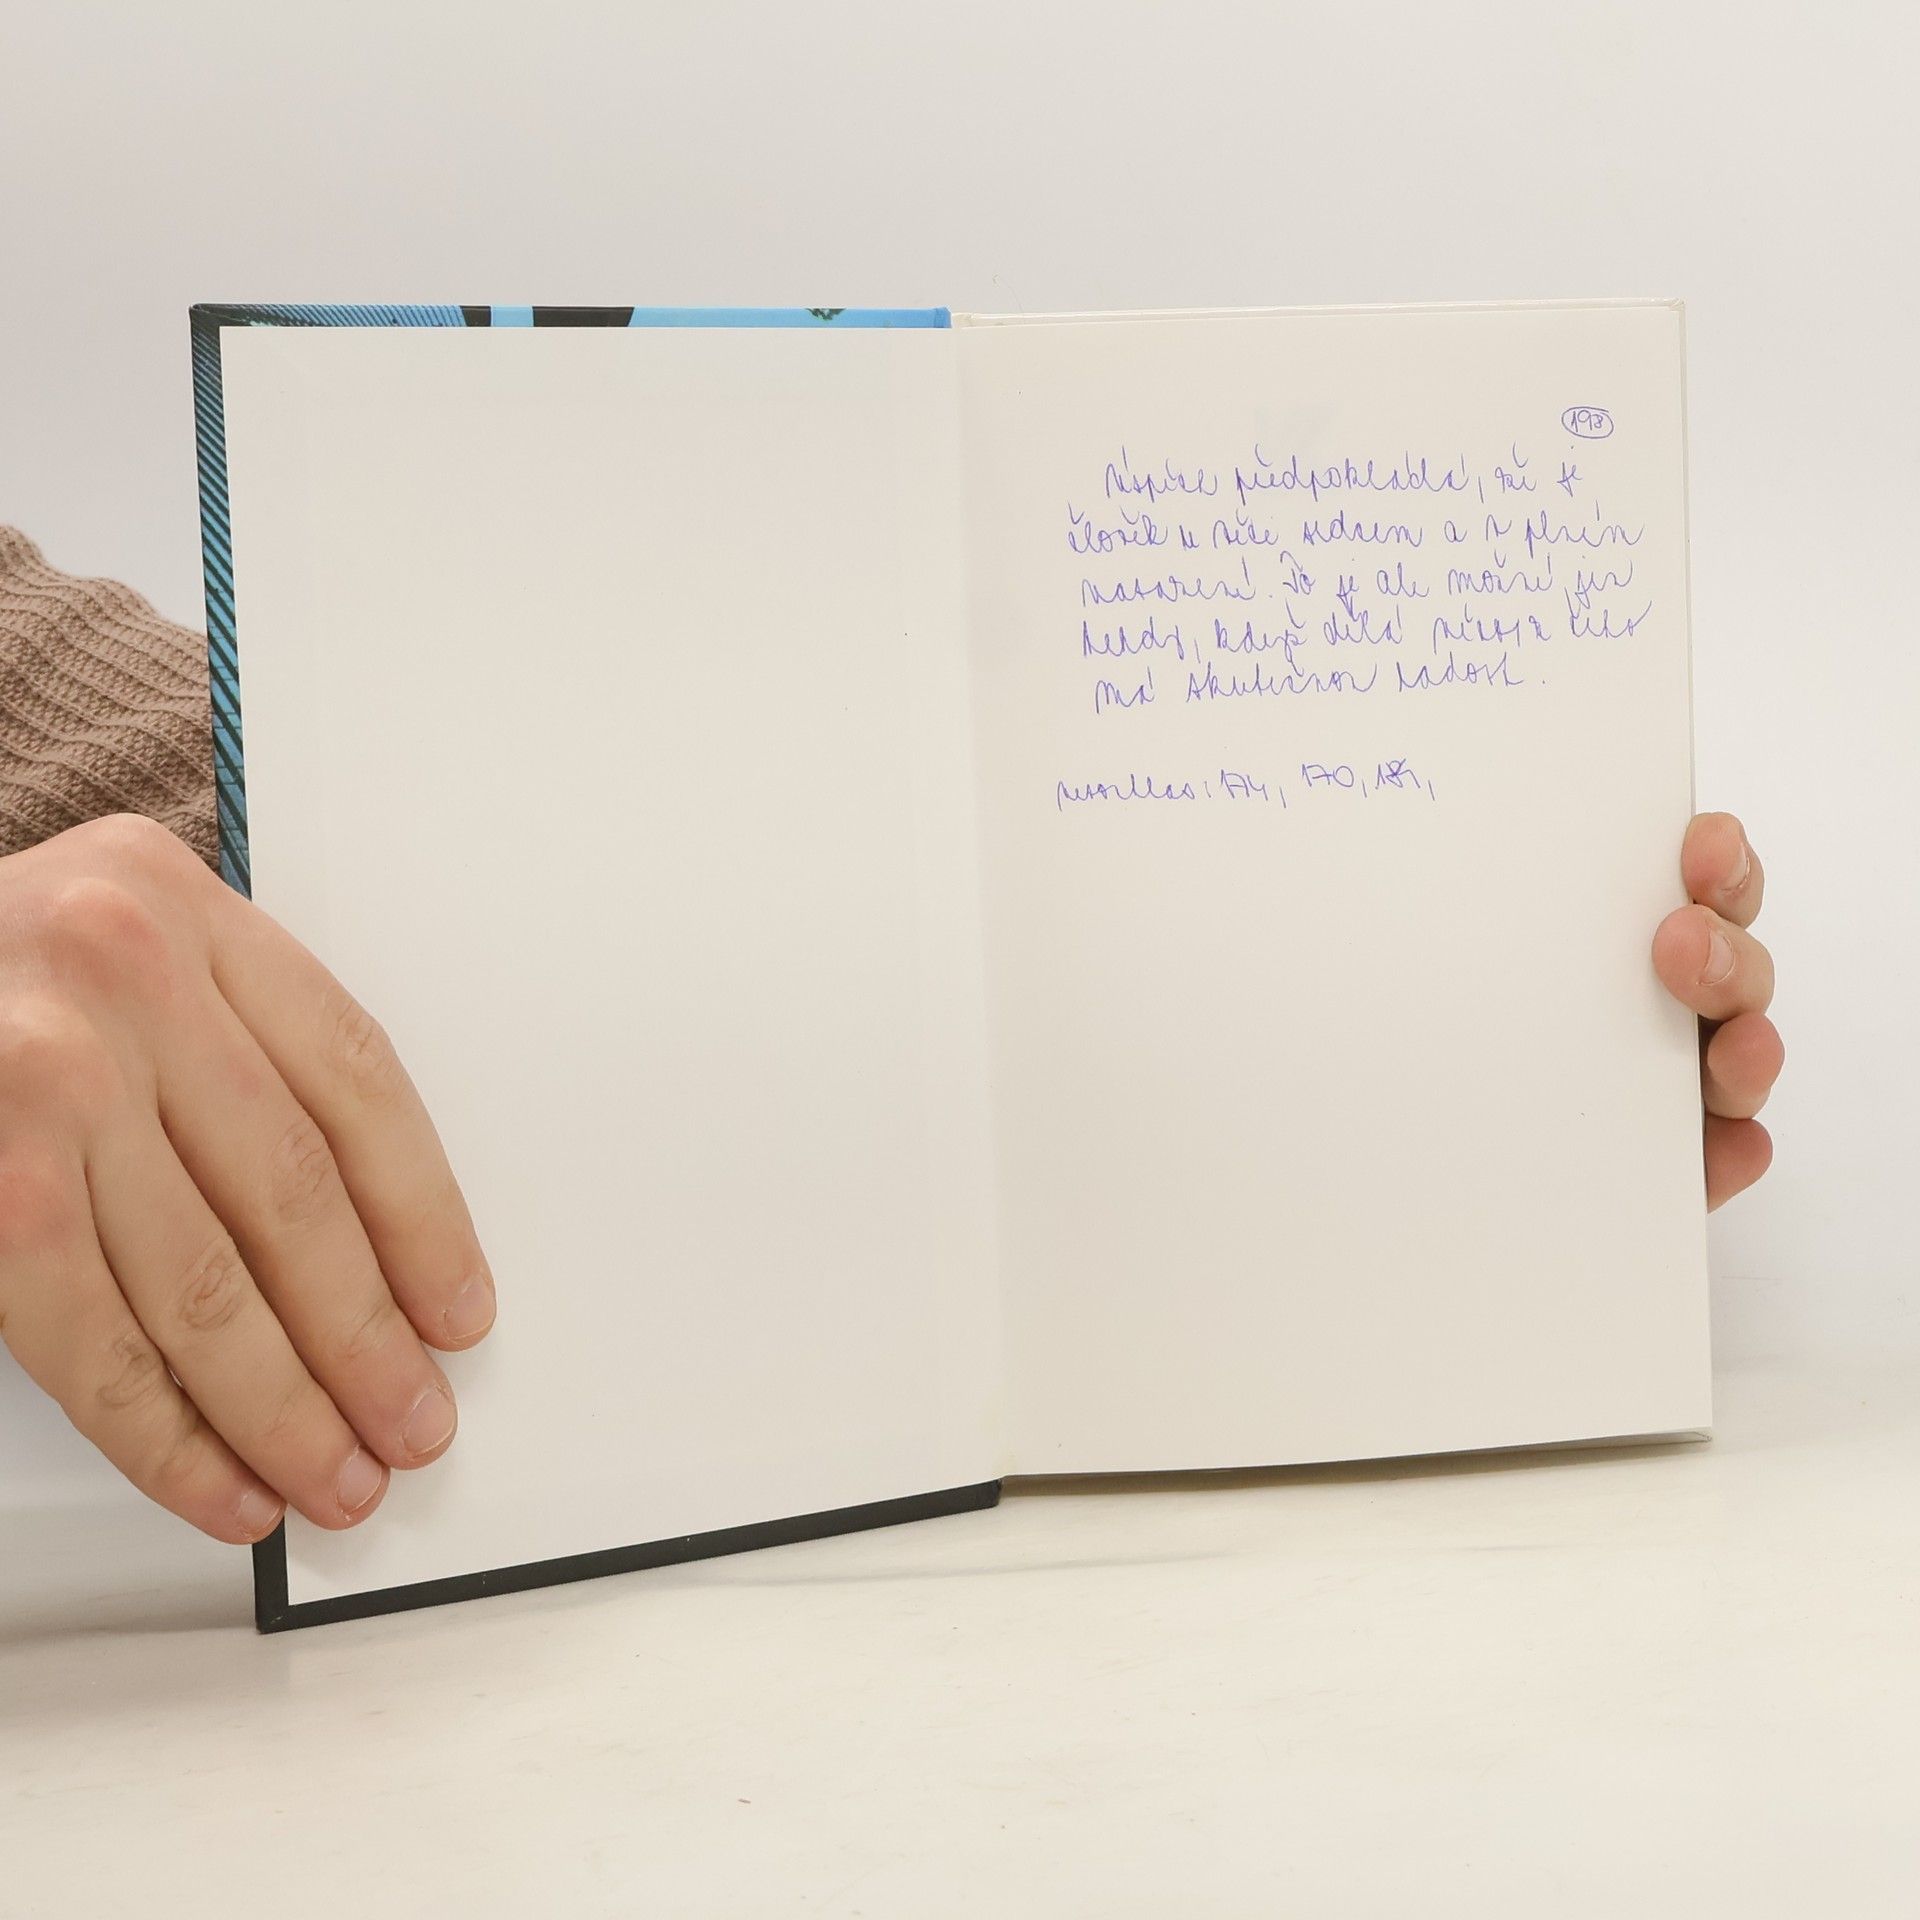 193
Úspěch předpokládá, že je
člověk u věci srdcem a v plném
nasazení. To je ale možné jen
tehdy, když dělá něco, z čeho
má skutečnou radost.
174, 170, 184,